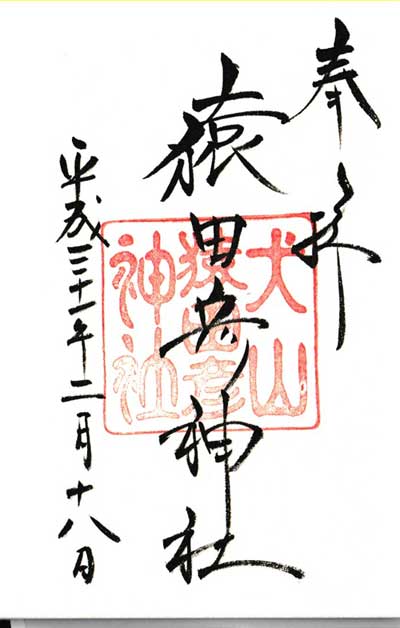 奉拝
猿田彦神社
犬山
猿田彦
神社
平成三十一年二月十八日